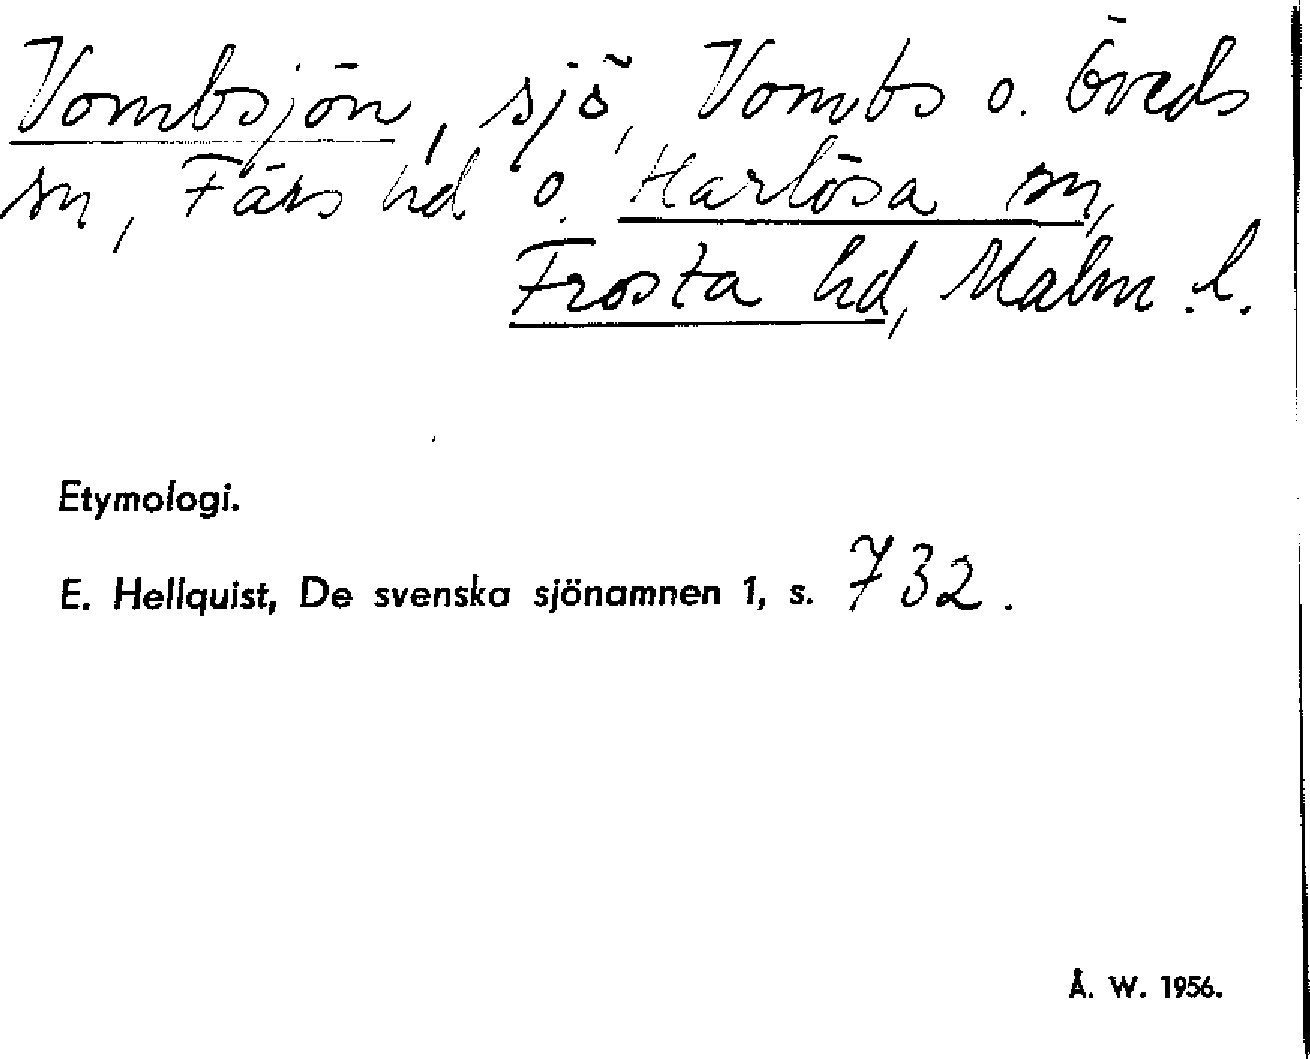 Vombsjön, sjö, Vombs o. Öveds
sn, Färs hd o. Harlösa sn,
Frosta hd, Malm. l.
Etymologi.
E. Hellquist, De svenska sjönamnen 1, s. 732.
Å. W. 1956.